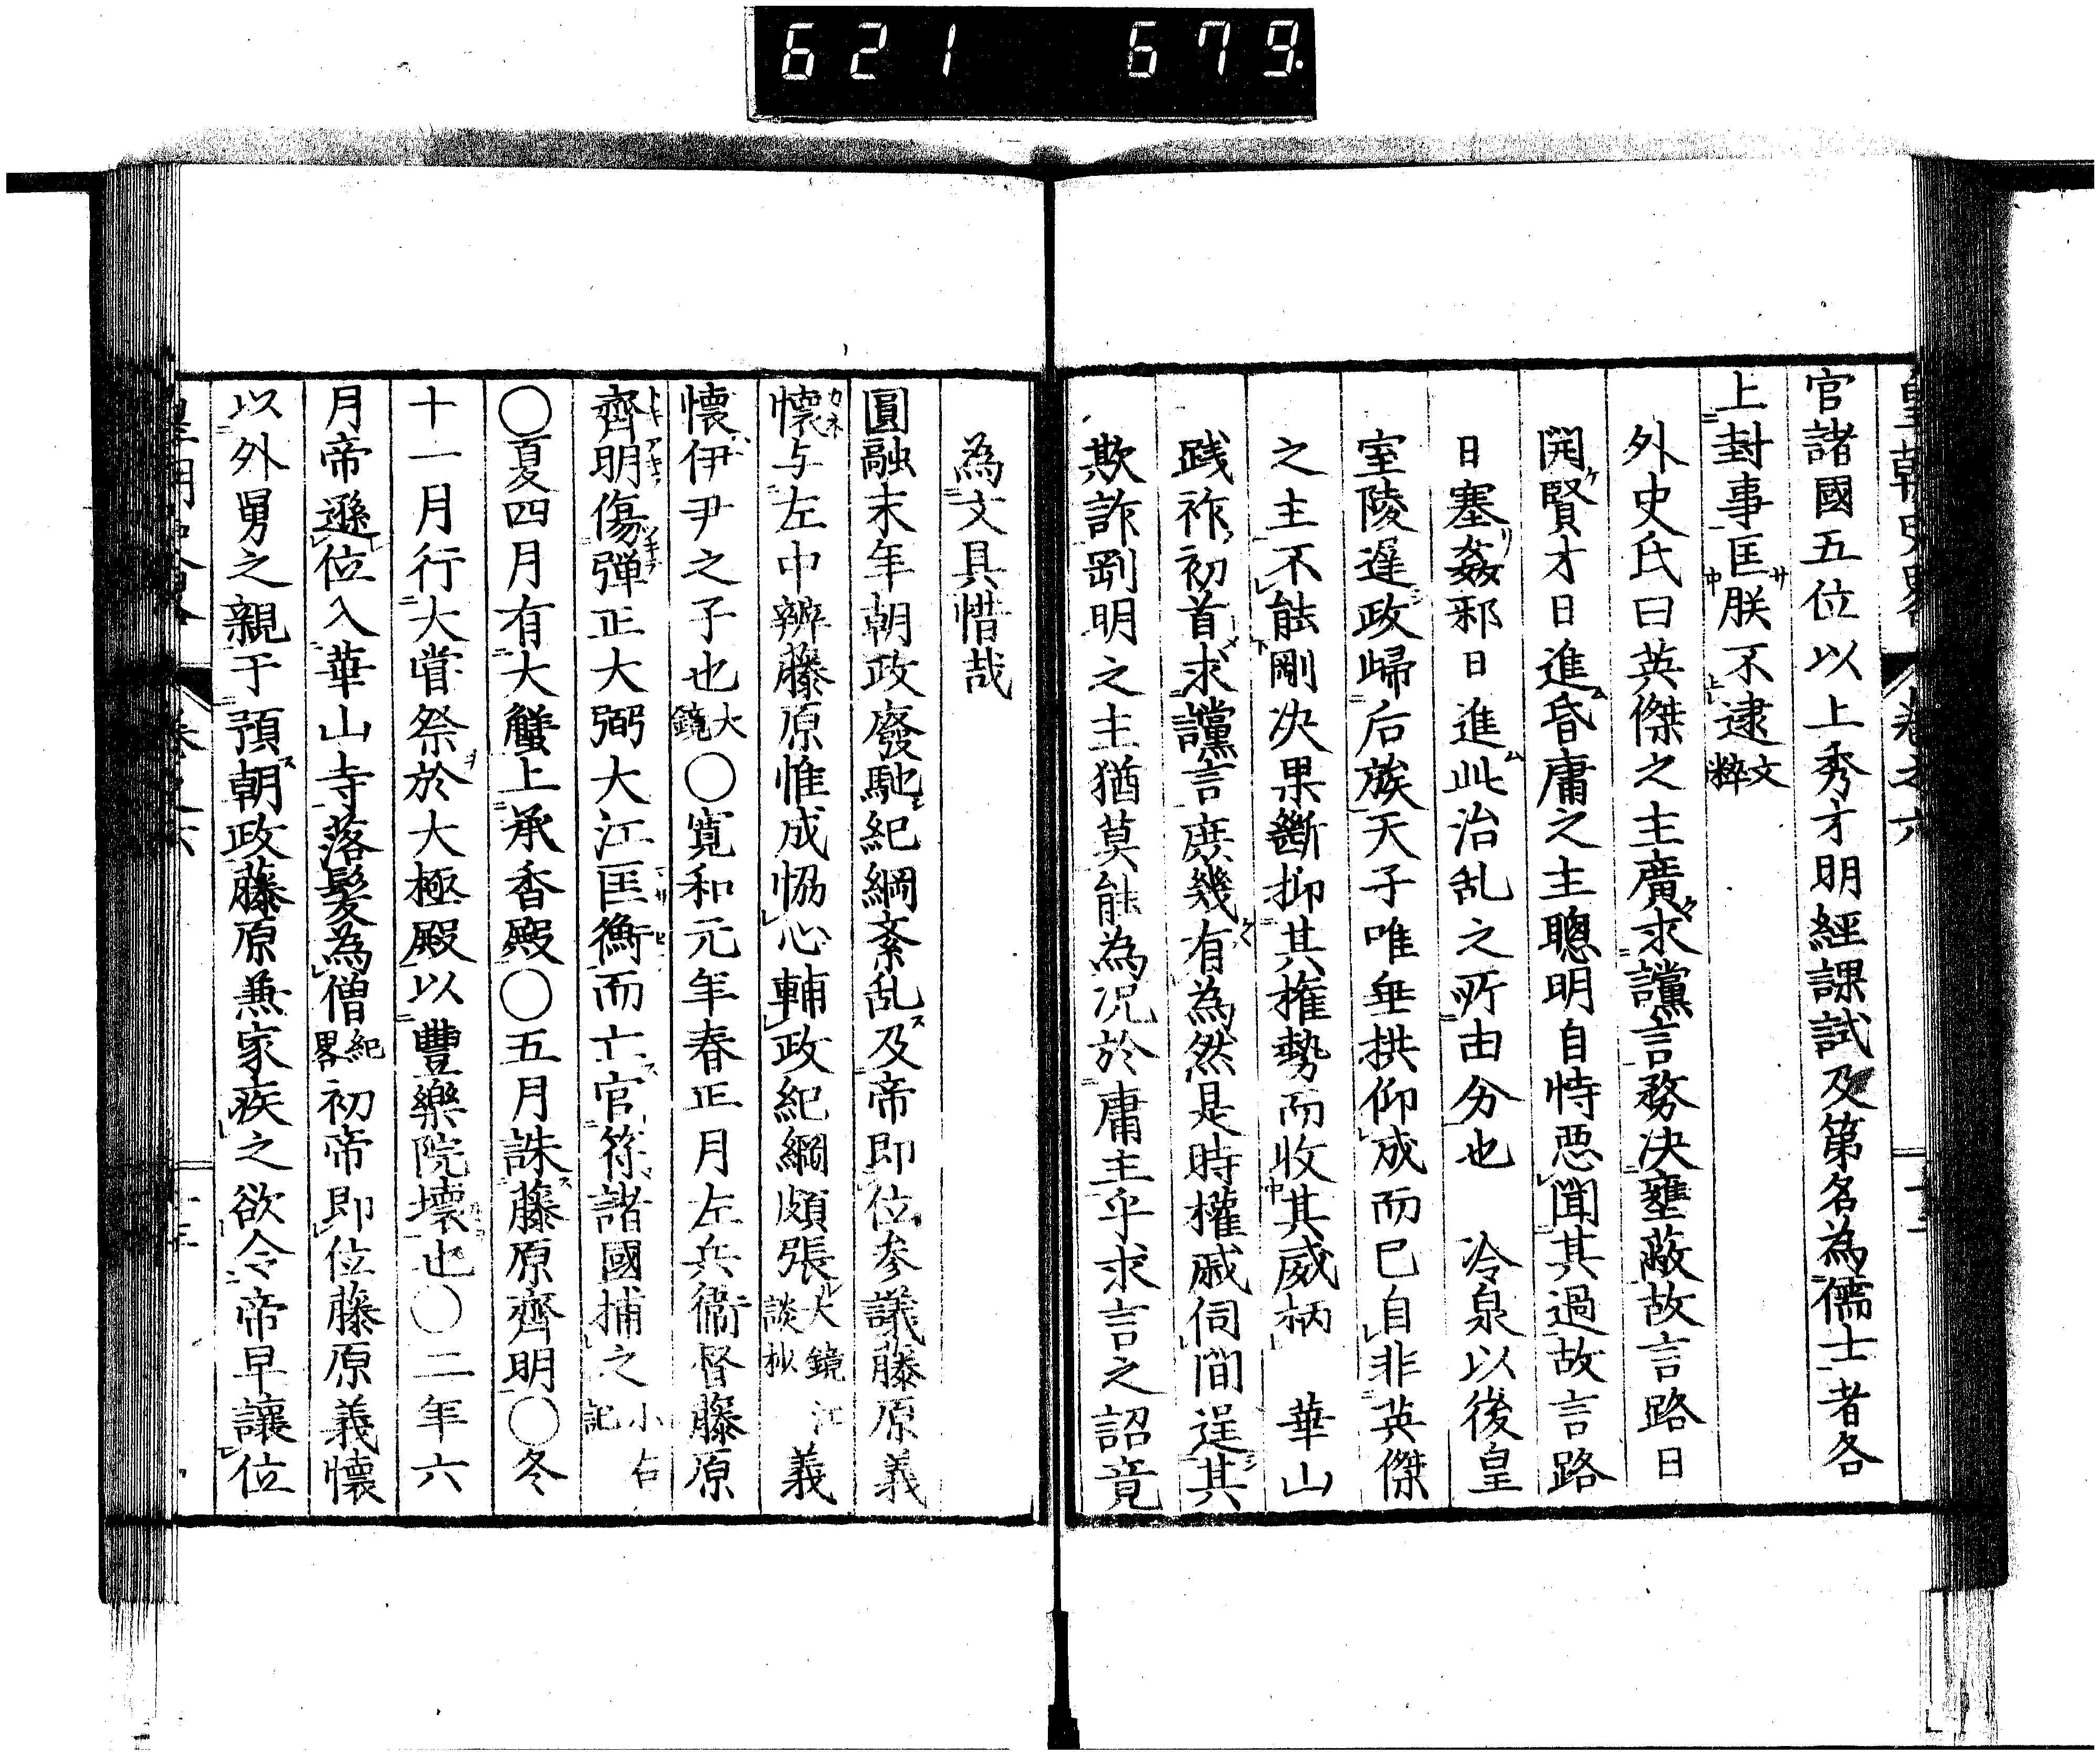 621 679.
官諸國五位以上秀才明經課試及第名為儒士者各
上封事匡朕不逮文粹
外史氏曰英傑之主廣求讜言務決壅蔽故言路日
開賢才日進昏庸之主聰明自恃惡聞其過故言路
日塞姦邪日進此治乱之所由分也　冷泉以後皇
室陵遅政歸后族天子唯垂拱仰成而已自非英傑
之主不能剛决果斷抑其權勢而收其威柄　華山
践祚初首求讜言庶幾有為然是時權戚伺間逞其
欺詐剛明之主猶莫能為况於庸主乎求言之詔竟
為文具惜哉
圓融末年朝政廢馳紀綱紊乱及帝即位参議藤原義
懐与左中辨藤原惟成恊心輔政紀綱頗張大鏡江談抄義
懐伊尹之子也大鏡〇寛和元年春正月左兵衞督藤原
齊明傷弾正大弼大江匡衡而亡官符諸國捕之小右記
〇夏四月有大蠥上承香殿〇五月誅藤原齊明〇冬
十一月行大甞祭於大極殿以豐樂院壊也〇二年六
月帝遜位入華山寺落髮為僧紀畧初帝即位藤原義懐
以外舅之親于預朝政藤原兼家疾之欲令帝早讓位